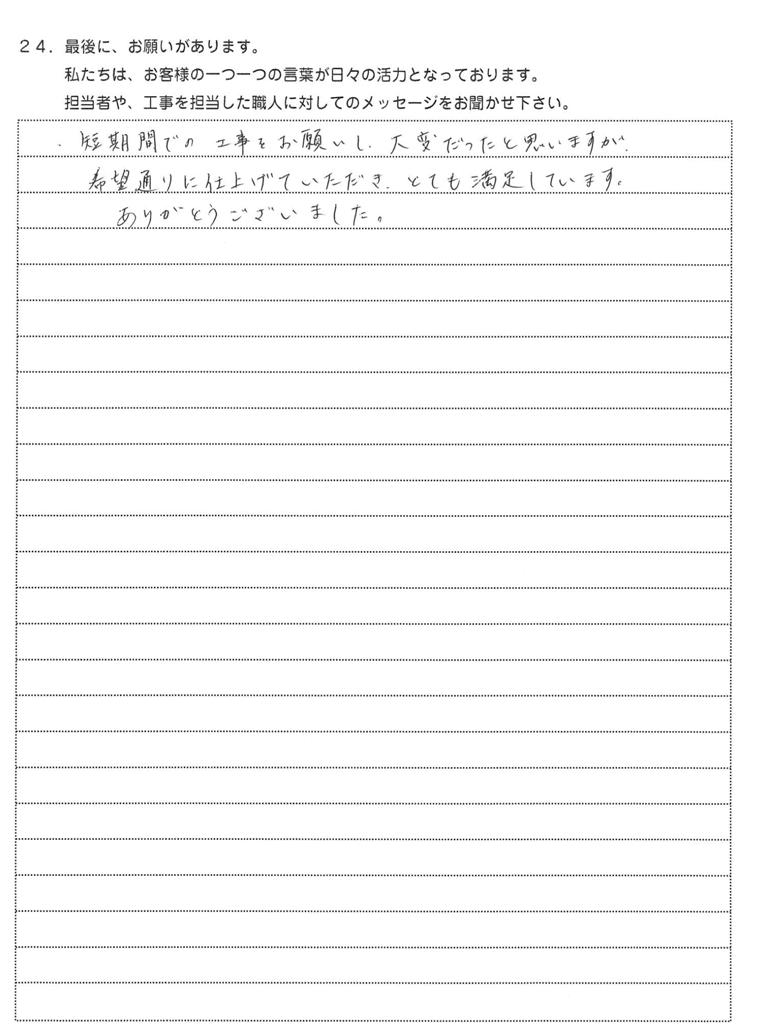 ２４．最後に、お願いがあります。
私たちは、お客様の一つ一つの言葉が日々の活力となっております。
担当者や、工事を担当した職人に対してのメッセージをお聞かせ下さい。
・短期間での工事をお願いし、大変だったと思いますが、
希望通りに仕上げていただき、とても満足しています。
ありがとうございました。